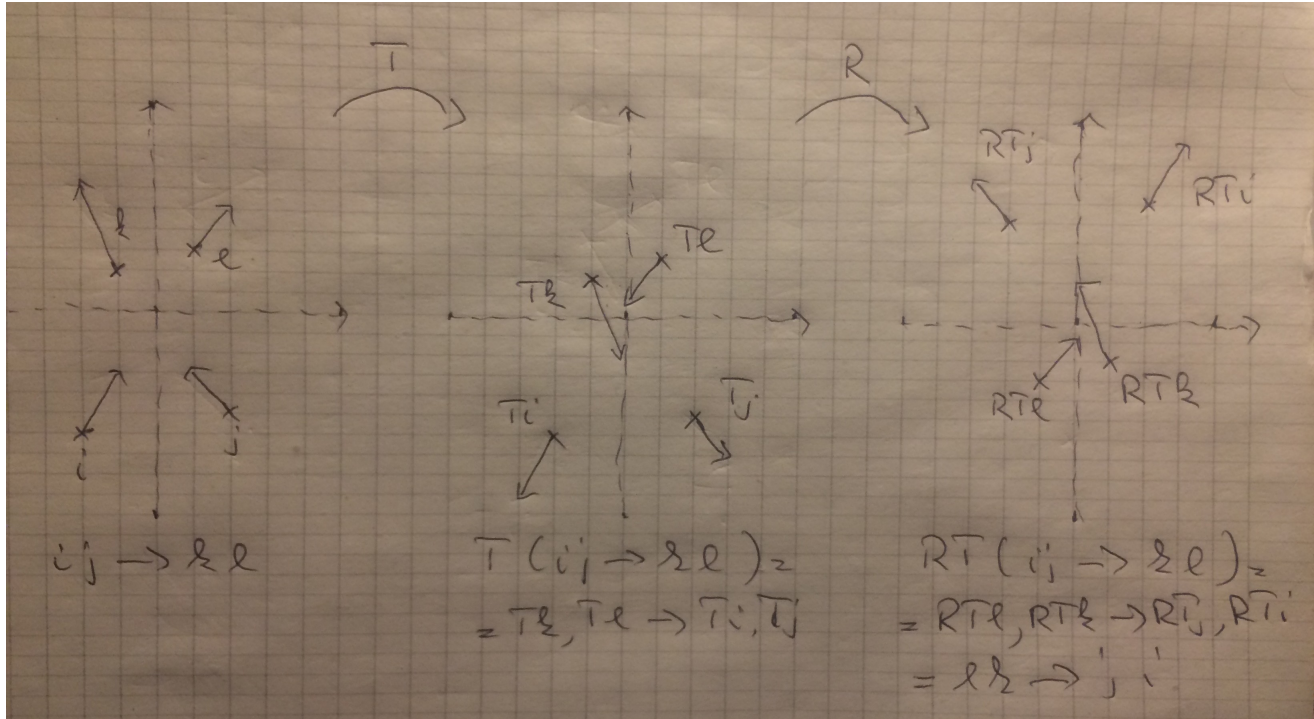 T
R
k
l
i
j
Tk
Tl
Ti
Tj
RTj
RTi
RTl
RTk
ij → kl
T(ij → kl) =
= Tk, Tl → Ti, Tj
RT(ij → kl) =
= RTl, RTk → RTj, RTi
= lk → j i